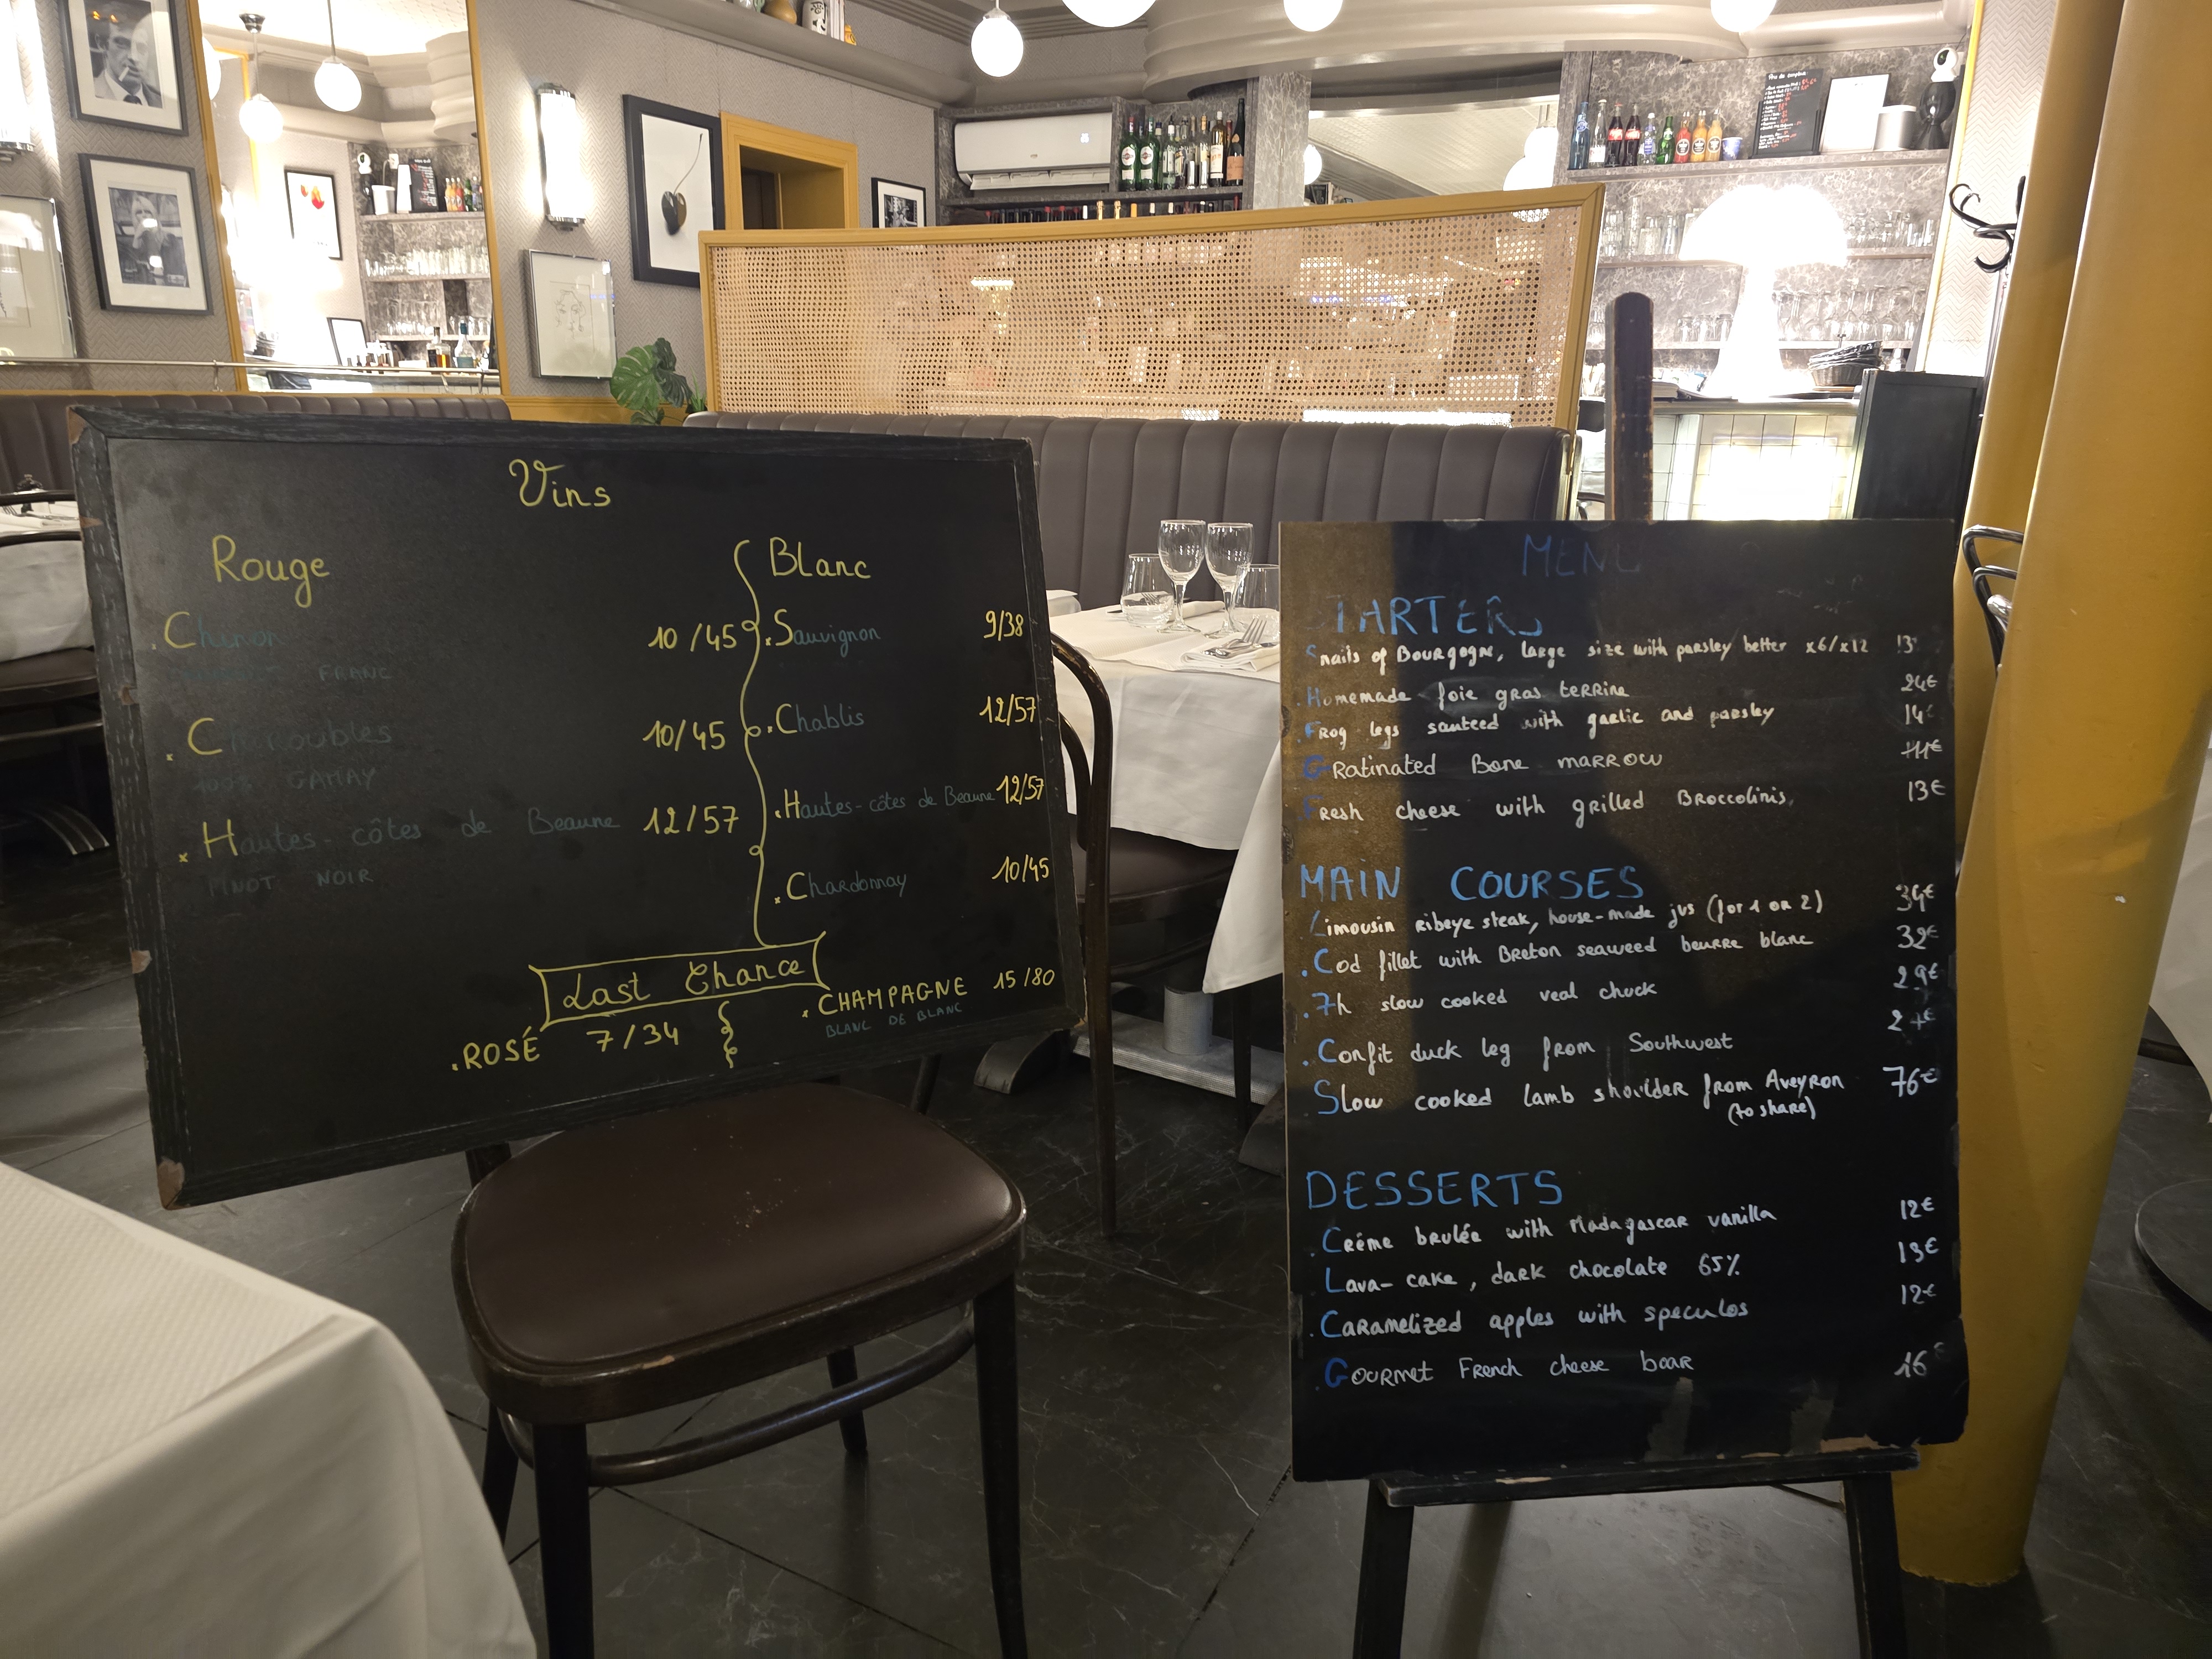 Vins
Rouge
. Chinon 10/45
FRANC
. Chiroubles 10/45
100% GAMAY
. Hautes-côtes de Beaune 12/57
PINOT NOIR
Blanc
. Sauvignon 9/38
. Chablis 12/57
. Hautes-côtes de Beaune 12/57
. Chardonnay 10/45
Last Chance
. ROSÉ 7/34
. CHAMPAGNE 15/80
BLANC DE BLANC
MENU
STARTERS
Snails of Bourgogne, large size with parsley better x6/x12 13
. Homemade foie gras terrine 24€
. Frog legs sauteed with garlic and parsley 14€
. Gratinated Bone marrow
. Fresh cheese with grilled Broccolinis 13€
MAIN COURSES
. Limousin ribeye steak, house-made jus (for 1 or 2)
. Cod fillet with Breton seaweed beurre blanc 32€
. 7h slow cooked veal chuck 29€
. Confit duck leg from Southwest
. Slow cooked lamb shoulder from Aveyron 76€
(to share)
DESSERTS
. Crème brulée with Madagascar vanilla 12€
. Lava-cake, dark chocolate 65% 13€
. Caramelized apples with speculos 12€
. Gourmet French cheese boar 16€